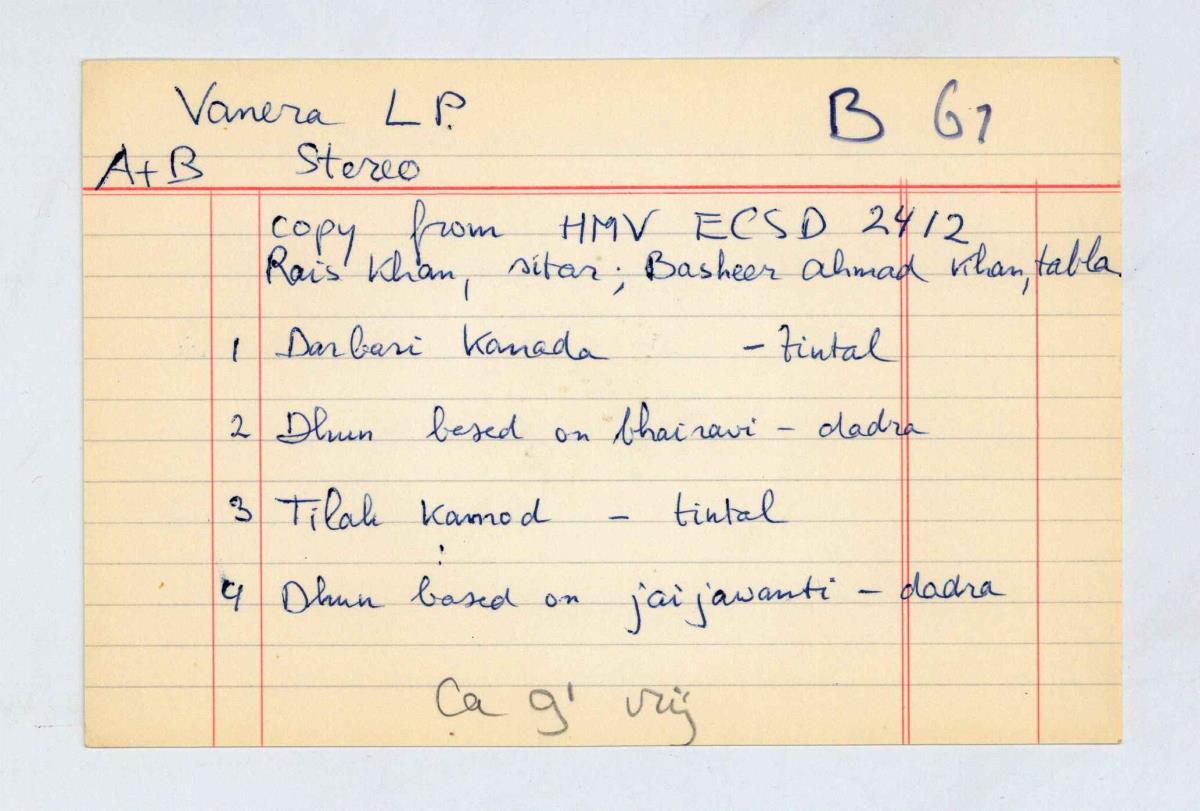 Vanera L P. B 61
A+B Stereo
copy from HMV ECSD 2412
Rais Khan, sitar; Basheer Ahmad Khan, tabla.
1 Darbari Kanada - tintal
2 Dhun based on bhairavi - dadra
3 Tilak Kamod - tintal
4 Dhun based on jaijawanti - dadra
Ca 9' vrij